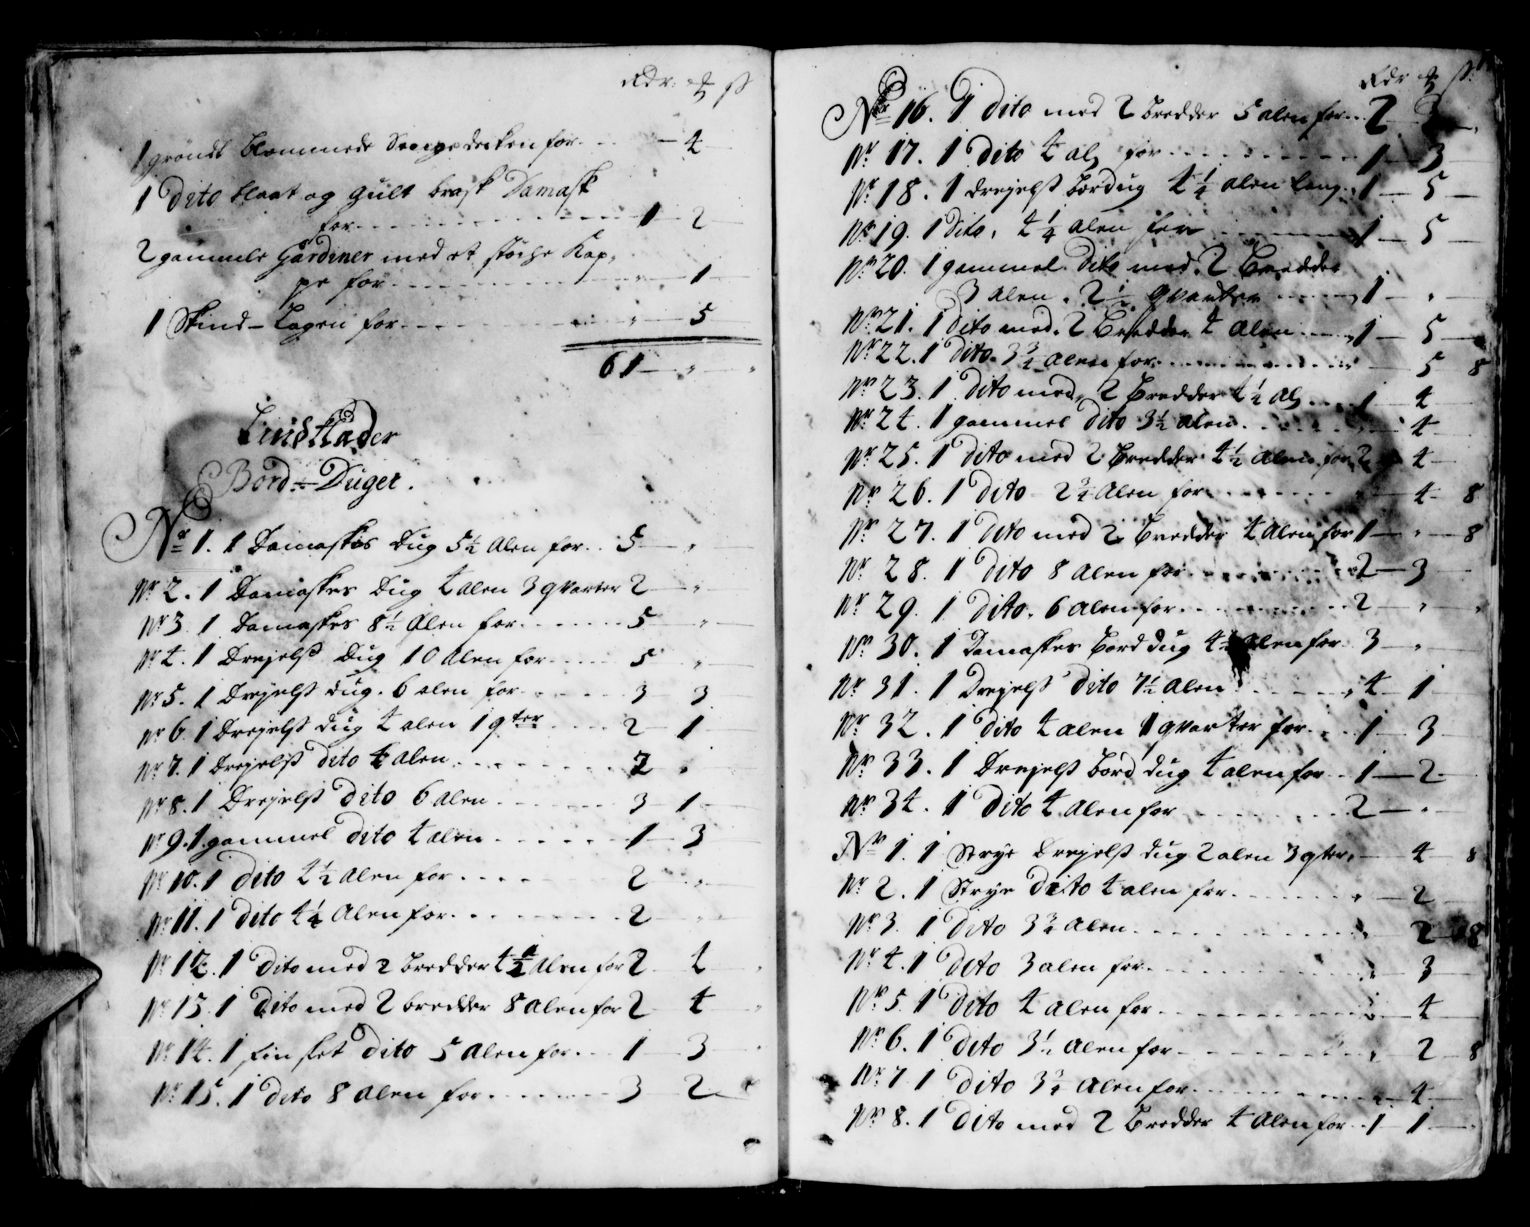 Rdr: ℥ ß
1 grøndt blommede Sengedecken for. . . . — 4 —
1 Dito blaat og gult brask Damask
for. . . . . . . 1 — 2 —
2 gammele Gardiner med et støche Kap,
pe for. . . . . . . " — 1 —
1 Skind-Lagen for. . . . . . " — 5 —
61 — " — "
Linklæder
Bord-Duger.
No 1. 1 Damaskes Dug 5½ Alen for. . 5 — " —
Nr 2. 1 Damaskes Dug 4 alen 3 qvarter 2 — " —
Nr 3. 1 Damaskes 8½ Alen for. . . . . . 5 — " —
Nr 4. 1 Drejelß Dug 10 Alen for. . . . 5 — " —
Nr 5. 1 Drejelß dug. 6 alen for. . . . 3 — 3
Nr 6. 1 Drejelß dug 4 alen 1 qter. . . . 2 — 1 —
Nr 7. 1 Drejelß dito 4 alen. . . . . . 2 "
Nr 8. 1 Drejelß Dito 6 alen. . . . . . 3 1 —
Nr 9. 1 gammel Dito 4 alen. . . . . . 1 — 3 —
Nr 10. 1 dito 4½ Alen for. . . . 2 — " —
Nr 11. 1 dito 4¼ Alen for. . . . . . 2 — "
Nr 12. 1 dito med 2 bredder 4½ Alen for 2 4
Nr 13. 1 Dito med 2 bredder 8 alen for 2 4 "
Nr 14. 1 fin slet Dito 5 alen for. . . 1 — 3 —
Nr 15. 1 dito 8 alen for. . . . . . 3 2 —
Rdr ℥ ß:
No 16. 1 dito med 2 bredder 5 alen for. . 2 — 3 —
Nr 17. 1 Dito 4 al for. . . . . . 1 — 3 —
Nr 18. 1 Drejelß bordug 4¼ alen lang. . 1 — 5 —
Nr 19. 1 Dito, 4¼ alen for . . . . 1 — 5 —
Nr 20. 1 gammel dito med 2 bredder
3 alen. 2½ qvarter . . . . 1 — " —
Nr 21. 1 dito med. 2 bredder 4 alen. . . 1 — 5 —
Nr 22. 1 dito. 3¾ alen for. . . . . . — 5 8
Nr 23. 1 dito med, 2 bredder 4½ al. . . 1 — 4 —
Nr 24. 1 gammel dito 3½ alen. . . . . . — 4 —
Nr 25. 1 dito med 2 bredder 4½ alen for 2 — 4 —
Nr 26. 1 dito 2¾ Alen for. . . . . . — 4 — 8
Nr 27. 1 dito med 2 bredder 4 alen for 1 — " — 8
Nr 28. 1 dito 8 alen for. . . . . . 2 — 3 —
Nr 29. 1 dito. 6 alen for. . . . . . 2 — " — "
Nr 30. 1 Damaskes bord dug 4½ alen for. 3 — " —
Nr 31. 1 Drejelß dito 7½ alen . . . . 4 — 1 —
Nr 32. 1 Dito 4 alen 1 qvarter for. . . 1 — 3 —
Nr 33. 1 Drejelß bord dug 4 alen for . . 1 — 2 —
Nr 34. 1 Dito 4 alen for . . . . . . 2 — "
No 1. 1 Strye drejelß dug 2 alen 3 qter. — 4 — 8
Nr 2. 1 Strye Dito 4 alen for. . . . . . — 2 —
Nr 3. 1 Dito 3¾ alen. . . . . . . — 2 — 8
Nr 4. 1 Dito 3 alen for. . . . . . — 3 —
Nr 5. 1 Dito 4 alen for. . . . . . — 4 —
Nr 6. 1 Dito 3½ alen for. . . . . . — 2 — 8
Nr 7 1 Dito 3¾ alen for. . . . . . — 4 —
Nr 8. 1 Dito med 2 bredder 4 alen for. . 1 1 —